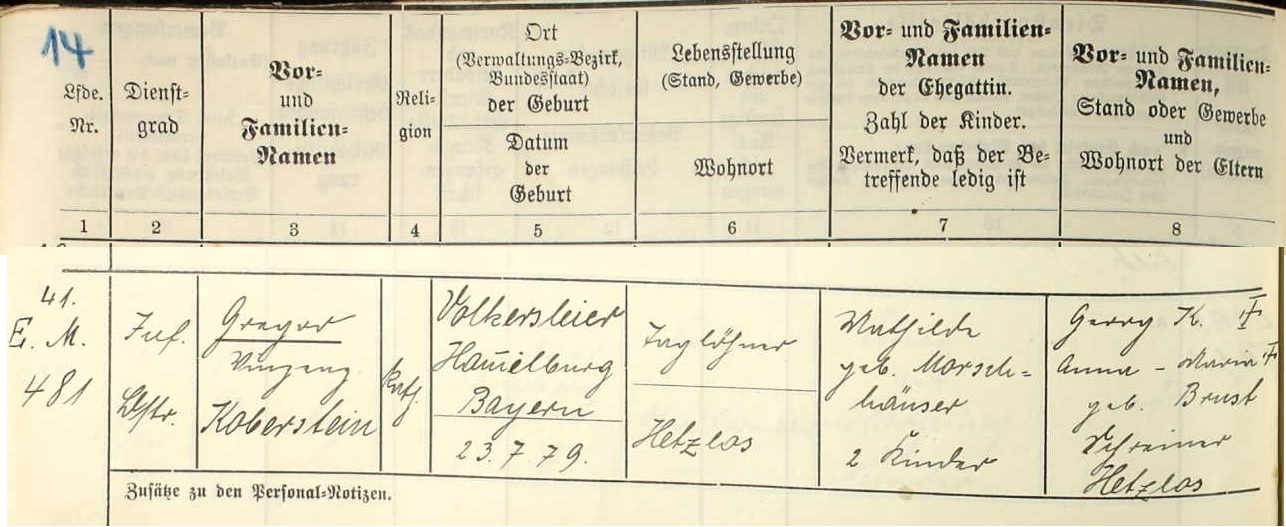 14
Lfde.
Nr.
Dienst-
grad
Vor-
und
Familien-
Namen
Reli-
gion
Ort
(Verwaltungs-Bezirk,
Bundesstaat)
der Geburt
Datum
der
Geburt
Lebensstellung
(Stand, Gewerbe)
Wohnort
Vor- und Familien-
Namen
der Ehegattin.
Zahl der Kinder.
Vermerk, daß der Be-
treffende ledig ist
Vor- und Familien-
Namen,
Stand oder Gewerbe
und
Wohnort der Eltern
1
2
3
4
5
6
7
8
41.
E. M.
481
Inf.
Lstr.
Gregor
Vinzenz
Koberstein
kath.
Volkersleier
Ham̅elburg
Bayern
23.7.79.
Taglöhner
Hetzlos
Mathilde
geb. Morsch-
häuser
2 Kinder
Georg K. †
Anna-Maria †
geb. Brust
Schreiner
Hetzlos
Zusätze zu den Personal-Notizen.